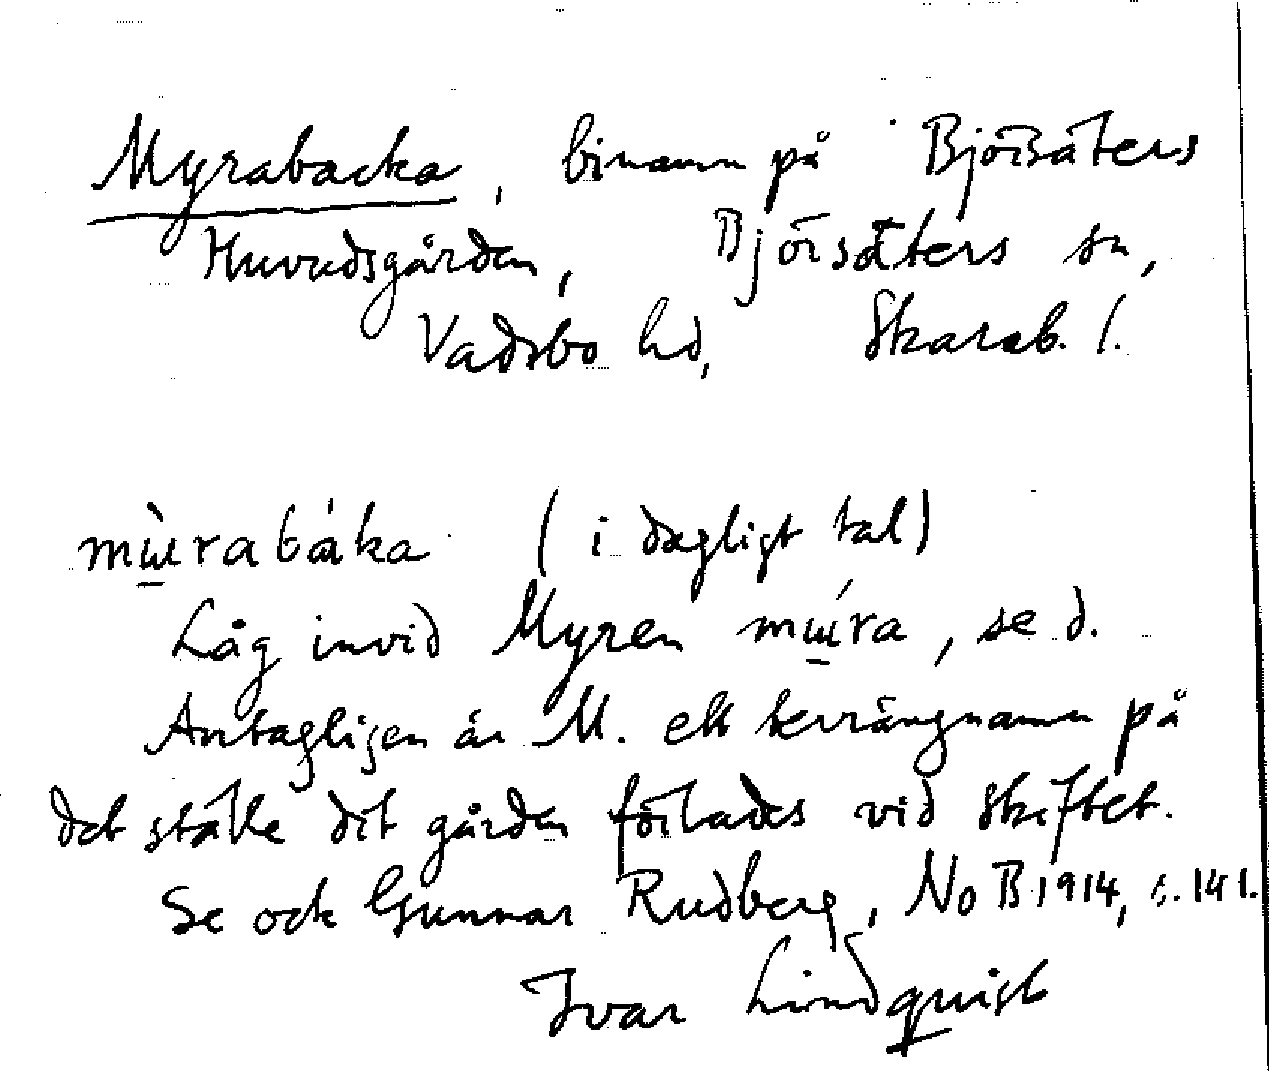 Myrabacka, binamn på Björsäters
Huvudsgården, Björsäters sn,
Vadsbo hd, Skarab. l.
mɯ̀rabáka (i dagligt tal)
Låg invid Myren mɯ́ra, se d.
Antagligen är M. ett terrängnamn på
det ställe dit gården förlades vid skiftet.
Se ock Gunnar Rudberg, NoB 1914, s. 141.
Ivar Lindquist